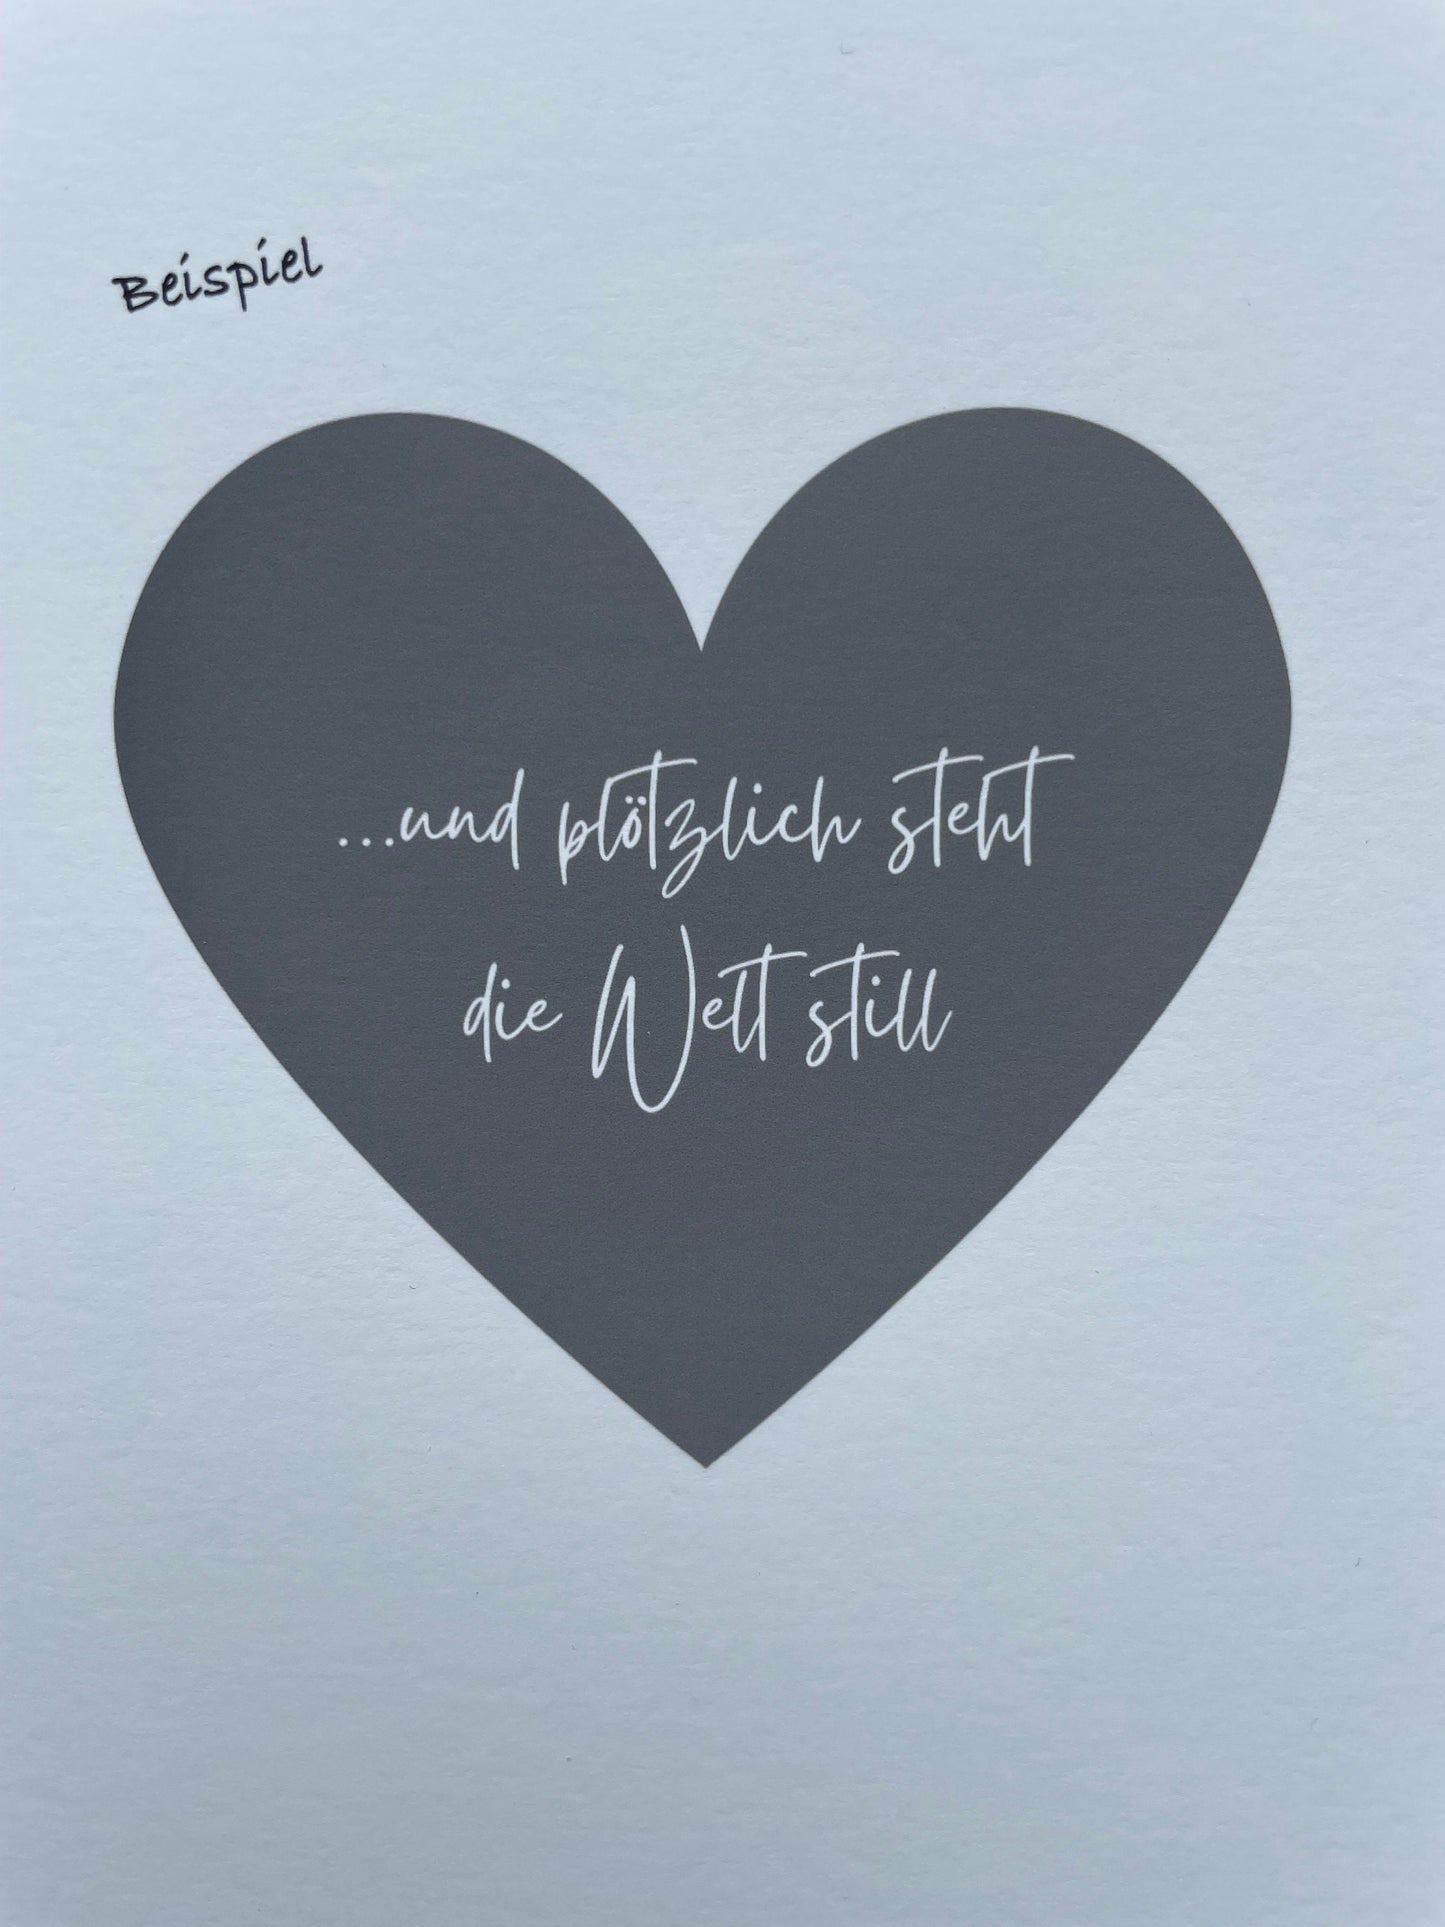 Beispiel
...und plötzlich steht
die Welt still